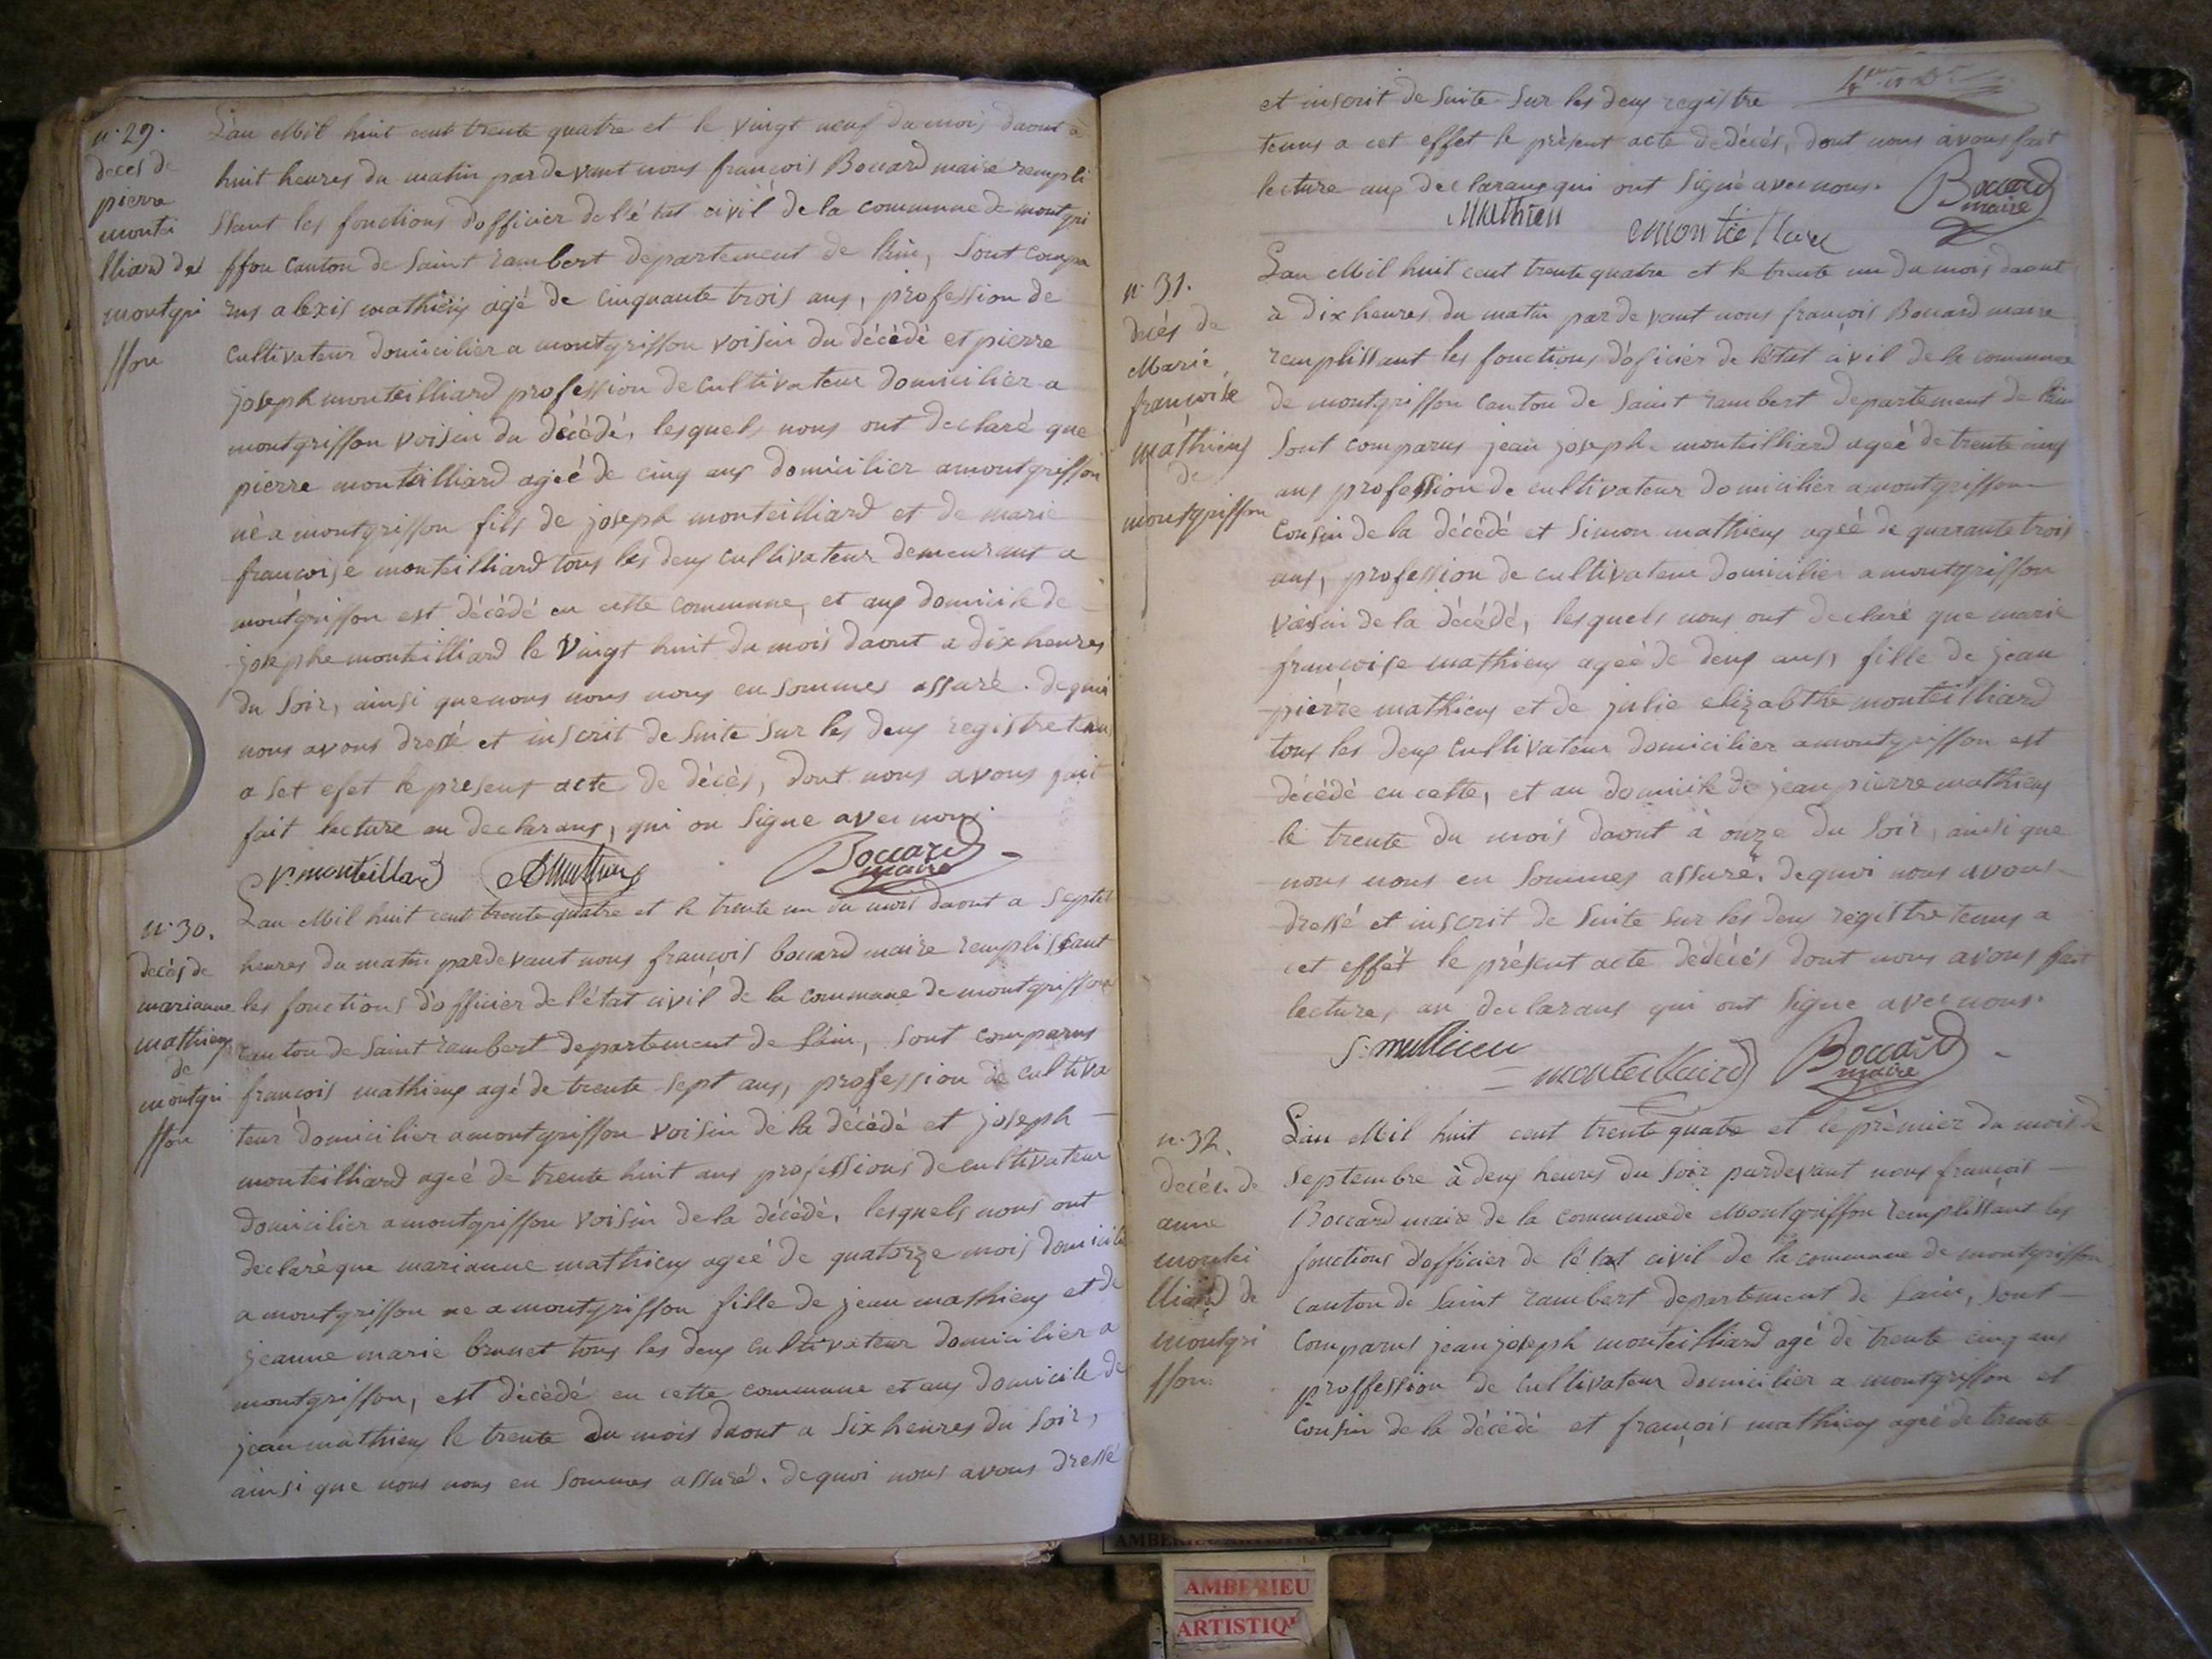 n. 29.
deces de
pierre
montei
lliard de
montgri
ffon
L'an Mil huit cent trente quatre et le vingt neuf du mois daout à
huit heures du matin pardevant nous françois Boccard maire rempli
ssant les fonctions d'officier de l'état civil de la commune de montgri
ffon canton de Saint rambert departement de l'ain, sont compa
rus alexis mathieux agé de cinquante trois ans, profession de
cultivateur domicilier a montgriffon voisin du décédé et pierre
joseph monteilliard profession de cultivateur domicilier a
montgriffon voisin du décédé, lesquels nous ont declaré que
pierre monteilliard ageé de cinq ans domicilier a montgriffon
né a montgriffon fils de joseph monteilliard et de marie
françoise monteilliard tous les deux cultivateur demeurant a
montgriffon est décédé en cette commune, et aux domicile de
josephe monteilliard le vingt huit du mois daout a dix heures
du soir, ainsi que nous nous nous en sommes assuré. de quoi
nous avons dressé et inscrit de suite sur les deux registre tenu
a set efet le present acte de décès, dont nous avons fait
fait lecture au declarans, qui on signe avec nous
P. monteillard AMathieux Boccard
maire
n. 30.
decès de
marianne
mathieux
de
montgri
ffon
L'an Mil huit cent trente quatre et le trente un du mois daout a sept
heures du matin pardevant nous françois boccard maire remplissant
les fonctions d'officier de l'état civil de la commune de montgriffon
canton de Saint rambert departement de L'ain, sont comparus
françois mathieux agé de trente sept ans, profession de cultiva
teur domicilier a montgriffon voisin de la décédé et joseph
monteilliard ageé de trente huit ans professions de cultivateur
domicilier a montgriffon voisin de la décédé, lesquels nous ont
declaré que marianne mathieux ageé de quatorze mois domicilié
a montgriffon ne a montgriffon fille de jean mathieux et de
jeanne marie brunet tous les deux cultivateur domicilier a
montgriffon, est décédé en cette commune et aux domicile de
jean mathieux le trente du mois daout a six heures du soir,
ainsi que nous nous en sommes assuré. de quoi nous avons dressé
et inscrit de suite sur les deux registre
tenus a cet effet le présent acte de décés, dont nous avons fait
lecture aux declarans qui ont signé avec nous.
Mathieu Monteillard Boccard
maire
n. 31.
decés de
Marie
françoise
mathieux
de
montgriffon
L'an Mil huit cent trente quatre et le trente un du mois daout
à dix heures du matin pardevant nous françois Boccard maire
remplissant les fonctions d'oficier de l'état civil de la commune
de montgriffon canton de Saint rambert departement de l'ain
sont comparus jean joseph monteilliard ageé de trente cinq
ans profession de cultivateur domicilier a montgriffon
cousin de la décédé et Simon mathieux ageé de quarante trois
ans, profession de cultivateur domicilier a montgriffon
voisin de la décédé, lesquels nous ont declaré que marie
françoise mathieux ageé de deux ans, fille de jean
pierre mathieux et de julie elizabthe monteilliard
tous les deux cultivateur domicilier a montgriffon est
décédé en cette, et au domicile de jean pierre mathieux
le trente du mois daout à onze du soir, ainsi que
nous nous en sommes assuré. de quoi nous avons
dressé et inscrit de suite sur les deux registre tenus a
cet effét le présent acte de décés dont nous avons fait
lecture, au declarans qui ont signe avec nous.
S. mathieu monteillaird Boccard
maire
n. 32.
decés de
anne
montei
lliard de
montgri
ffon.
L'an Mil huit cent trente quatre et le prémier du mois de
septembre à deux heures du soir pardevant nous françois
Boccard maire de la commune de Montgriffon remplissant les
fonctions d'officier de l'état civil de la commune de montgriffon
canton de Saint rambert departement de Lain, sont
comparus jean joseph monteilliard agé de trente cinq ans
proffession de cultivateur domicilier a montgriffon et
cousin de la décédé et françois mathieux ageé de trente
AMBERIEU
ARTISTIQUE